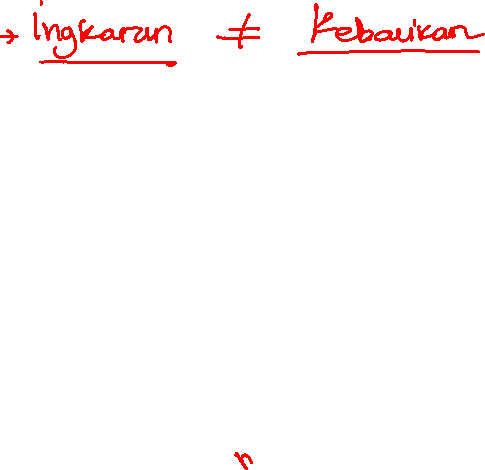 → Ingkaran ≠ Kebalikan
n